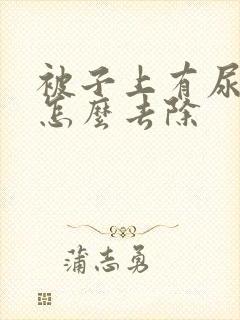 被子上有尿
怎麼去除
蒲志勇